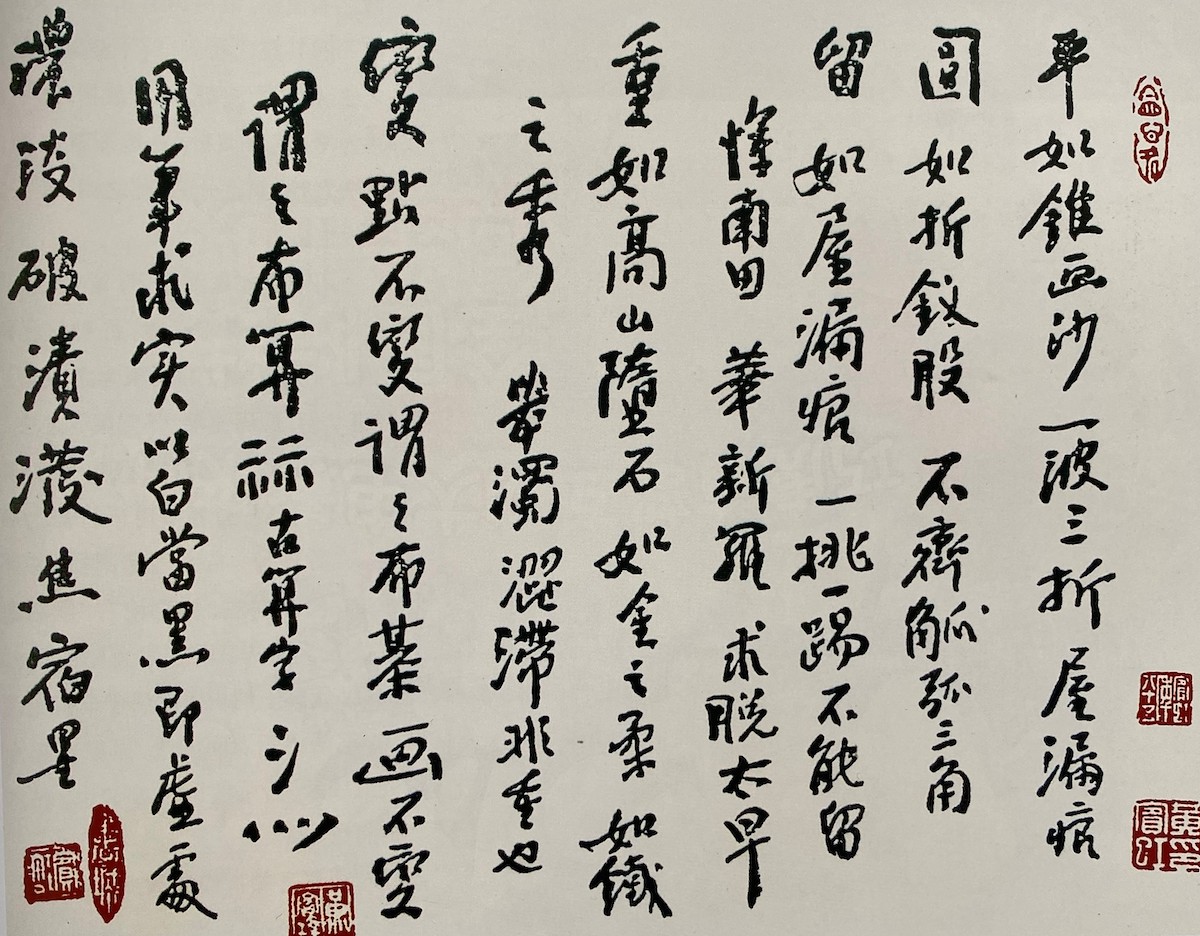 平如錐画沙一波三折屋漏痕
圓如折釵股不齊觚弧三角
留如屋漏痕一挑一踢不能留
惲南田華新羅求脱太早
重如高山墮石如金之柔如鐵
之秀 濁澀滯非重也
變點不變謂之布棊画不變
謂之布算祘古算字
用筆求实以白當黑即虛處
濃破漬潑焦宿墨
黃賓虹